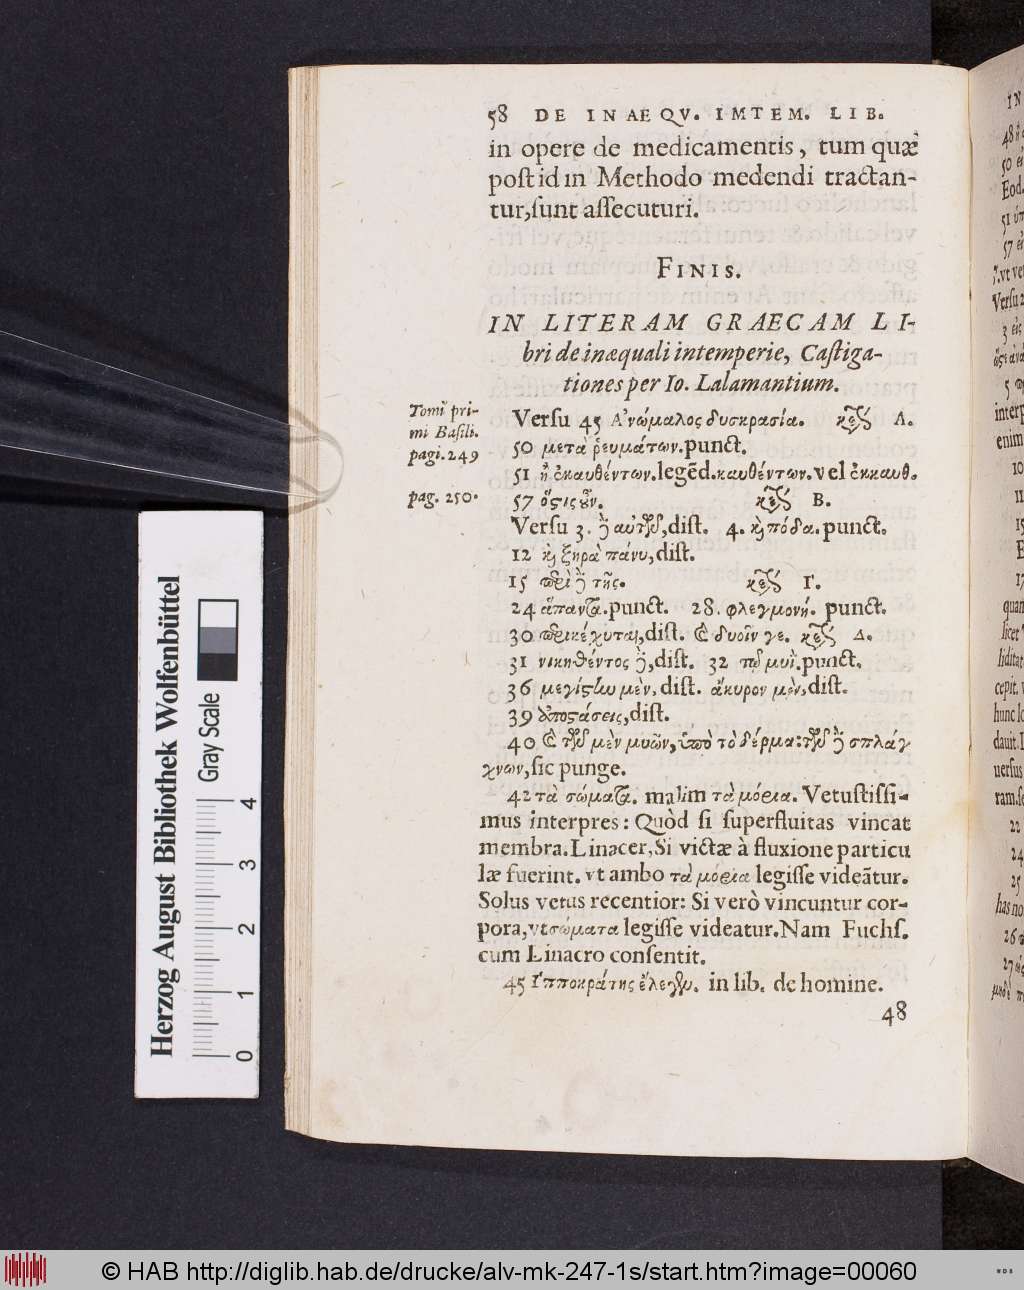 58 DE INAEQV. IMTEM. LIB.
in opere de medicamentis, tum quæ
post id in Methodo medendi tractan-
tur, sunt assecuturi.
FINIS.
IN LITERAM GRAECAM LI-
bri de inæquali intemperie, Castiga-
tiones per Io. Lalamantium.
Tomi pri-
mi Basili.
pagi. 249
Versu 45 Ἀνώμαλος δυσκρασία. κεφ Α.
50 μετὰ ῥευμάτων. punct.
51 ἢ ἐκαυθέντων. legēd. καυθέντων. vel ἐκκαυθ.
pag. 250.
57 ὅστις οὖν. κεφ Β.
Versu 3. ἢ αὐτοῦ, dist. 4. καὶ πόδα. punct.
12 καὶ ξηρὰ πάνυ, dist.
15 περὶ τῆς. κεφ Γ.
24 ἅπαντα. punct. 28. φλεγμονή. punct.
30 περικέχυται, dist. δυοῖν γε. κεφ Δ.
31 νικηθέντος, dist. 32 μυΐ. punct.
36 μεγίστην μὲν, dist. ἄκυρον μὲν, dist.
39 ἀποστάσεις, dist.
40 τοῦ μὲν μυῶν, ὑπὸ τὸ δέρμα: σπλάγ
χνων, sic punge.
42 τὰ σώματα. malim τὰ μόρια. Vetustissi-
mus interpres: Quòd si superfluitas vincat
membra. Linacer, Si victæ à fluxione particu
læ fuerint. vt ambo τὰ μόρια legisse videātur.
Solus vetus recentior: Si verò vincuntur cor-
pora, vt σώματα legisse videatur. Nam Fuchs.
cum Linacro consentit.
45 Ἱπποκράτης ἔλεγεν. in lib. de homine.
48
Herzog August Bibliothek Wolfenbüttel
Gray Scale
0 1 2 3 4
© HAB http://diglib.hab.de/drucke/alv-mk-247-1s/start.htm?image=00060